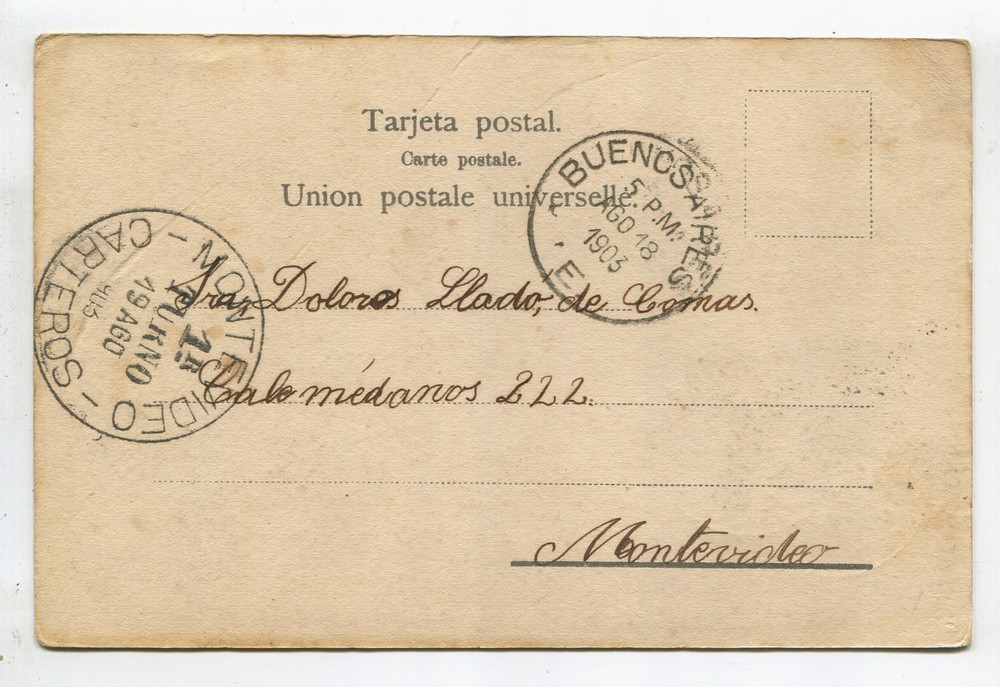 Tarjeta postal.
Carte postale.
Union postale universelle.
BUENOS AIRES
5 P.M.
AGO 18
1903
E
MONTEVIDEO - CARTEROS -
1R
TURNO
19 AGO
903
Sra Dolores Lladó, de Comas.
Cale médanos 222.
Montevideo